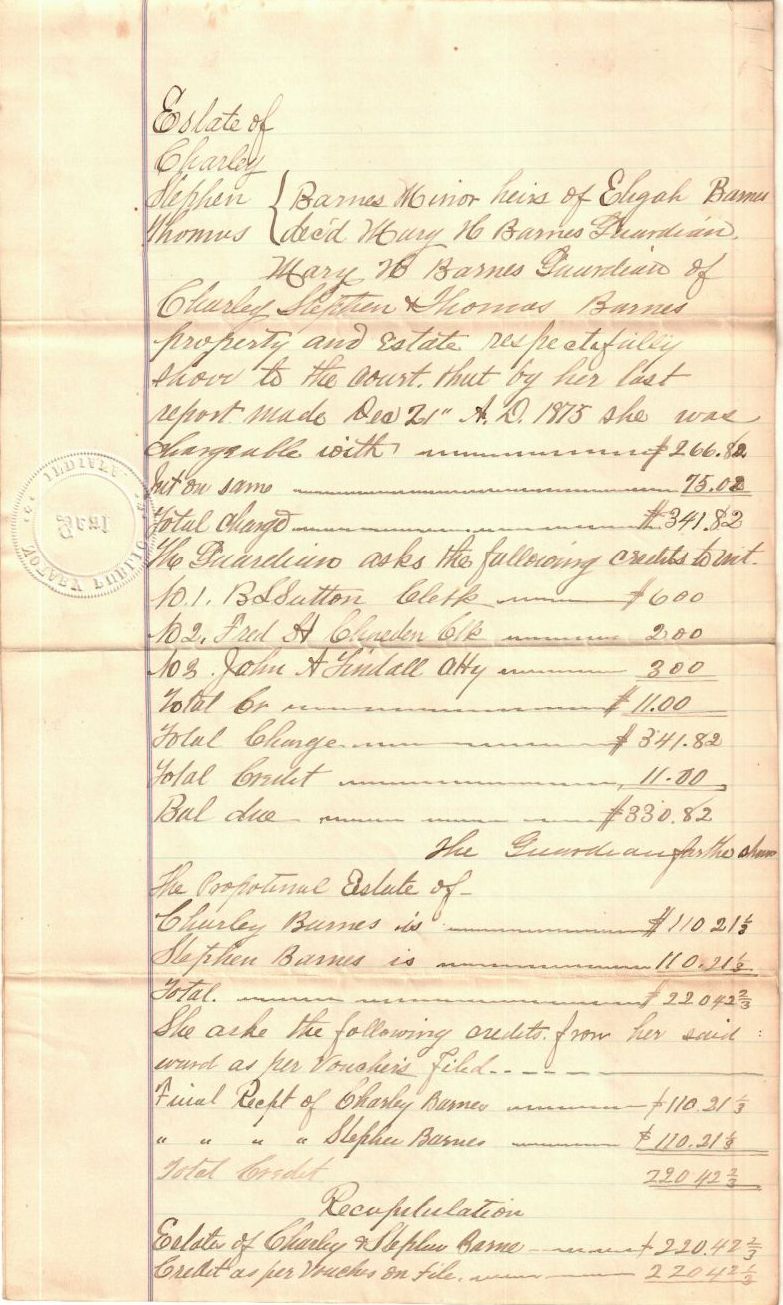 Estate of
Charley
Stephen { Barnes Minor heirs of Elijah Barnes
Thomas dec'd Mary H Barnes Guardian.
Mary H Barnes Guardian of
Charley Stephen & Thomas Barnes
property and Estate respectifully
show to the court. that by her last
report made Dec 21" A. D. 1875 she was
chargeable with $266.82
Int on same 75.02
Total Charge $341.82
The Guardian asks the following credits to wit.
No 1. B L Sutton Clerk $6 00
No 2. Fred H Clk 2.00
No 3. John A Tindall Atty 3 00
Total Cr $11.00
Total Charge $341.82
Total Credit 11.00
Bal due $330.82
The Guardian further shows
The Propotinal Estate of
Charley Barnes is $110 21 1/3
Stephen Barnes is 110.21 1/3
Total. $220 42 2/3
She aske the following credits from her said
ward as per Vouchers Filed
Final Recpt of Charley Barnes $110 21 1/3
" " " " Stephen Barnes $110.21 1/3
Total Credit 220 42 2/3
Recapitulation
Estate of Charley & Stephen Barne $220.42 2/3
Credit as per Vouches on File. 220 42 1/3
NOTARY PUBLIC
Seal